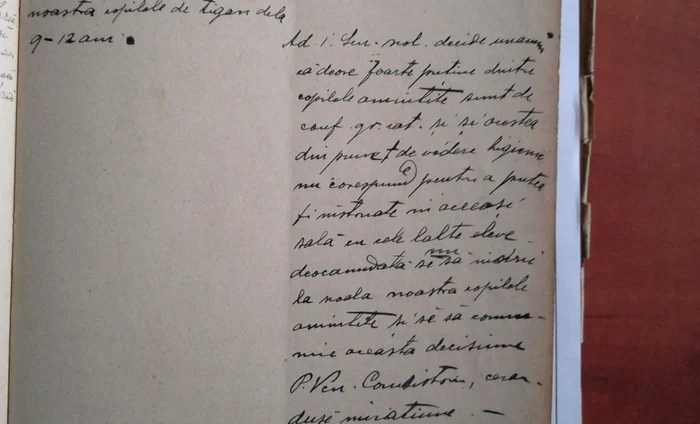 noastra copilele de tigan dela
9-12 ani.
Ad 1. Sen. scol. decide unanim
că deore foarte putine dintre
copilele amintite sunt de
conf. gr. cat. și si acestea
din punct de vedere higienic
nu corespund pentru a putea
fi instruate in aceeasi
sală cu cele lalte eleve
deocamdată se nu să inscrii
la scoala noastra copilele
amintite si se să comu-
nice aceasta decisiune
P. Ven. Consistoriu, ceran-
duse